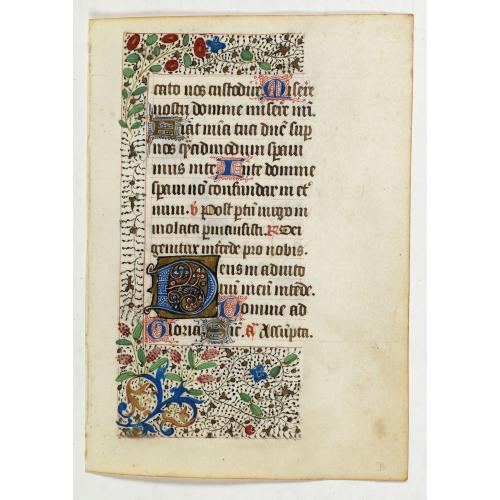 cato nos custodire. Misere
nostri domine misere nri.
Fiat mia tua dne sup
nos qeadmodum spaui
mus in te. In te domine
speraui no confundar in et
num. v Post ptu uirgo in
uiolata pmansisti. R Dei
genitrix intcede pro nobis.
Deus in adiuto
riu meu intede.
Domine ad
Gloria Sic. a Assupta.